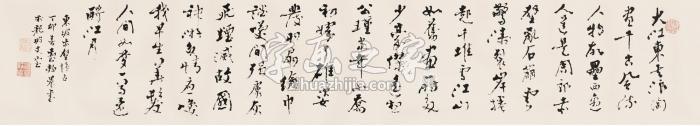 大江東去浪淘
盡千古風流
人物故壘西邊
人道是周郎赤
壁亂石崩雲
驚濤裂岸捲
起千堆雪江山
如畫一時多
少豪傑遙想
公瑾當年小喬
初嫁了雄姿
英發羽扇綸巾
談笑間強虜灰
飛煙滅故國
神遊多情應笑
我早生華髮
人間如夢一尊還
酹江月
東坡赤壁懷古
丁卯